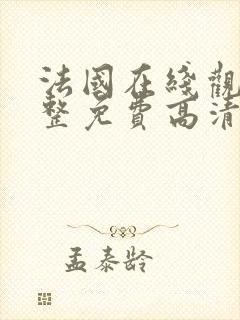 法國在綫觀
整免費高清
孟泰龄